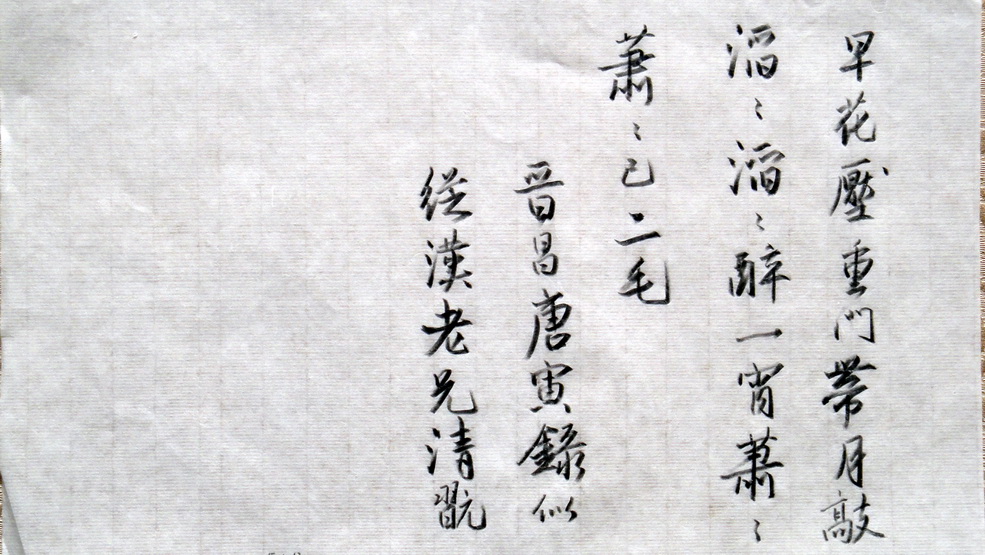 早花壓重門帶月敲
滔〻滔〻醉一宵蕭〻
蕭〻已二毛
晉昌唐寅錄似
從漢老兄清翫